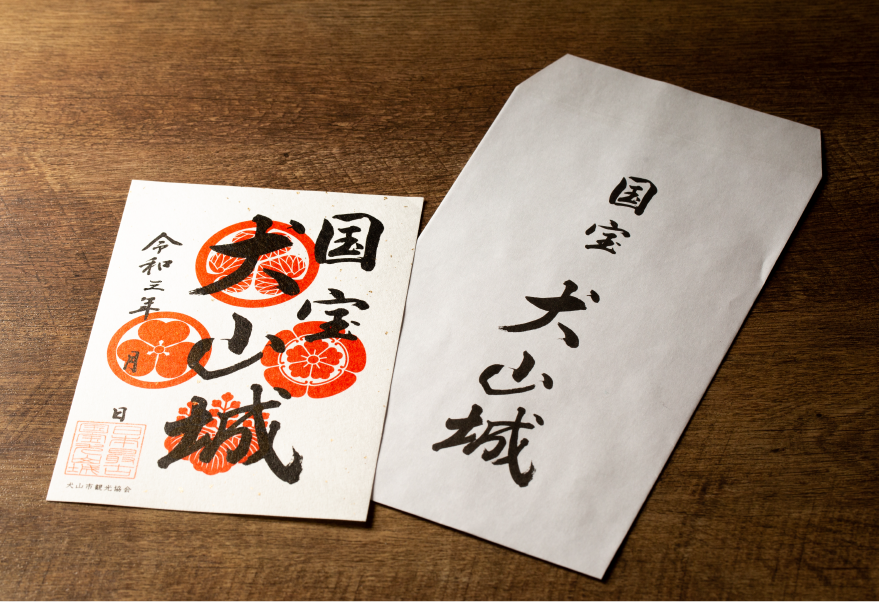 国宝
犬山城
令和三年
月
日
犬山市観光協会
国宝
犬山城